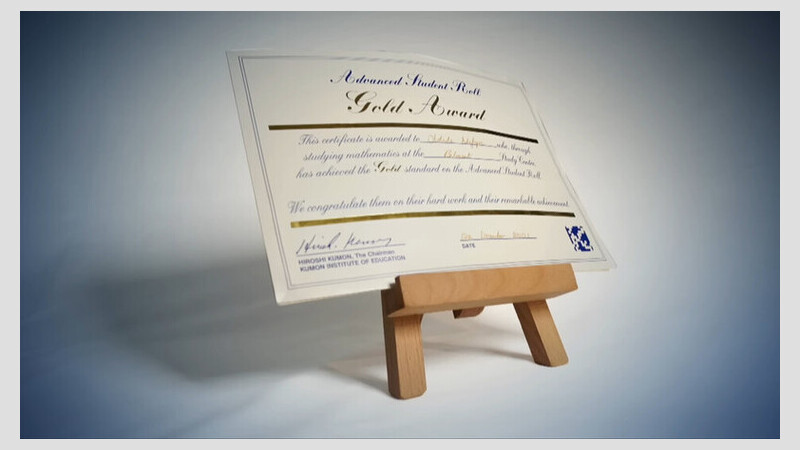 Advanced Student Roll
Gold Award
This certificate is awarded to who, through
studying mathematics at the Study Centre,
has achieved the Gold standard on the Advanced Student Roll.
We congratulate them on their hard work and their remarkable achievement.
HIROSHI KUMON, The Chairman
KUMON INSTITUTE OF EDUCATION
DATE